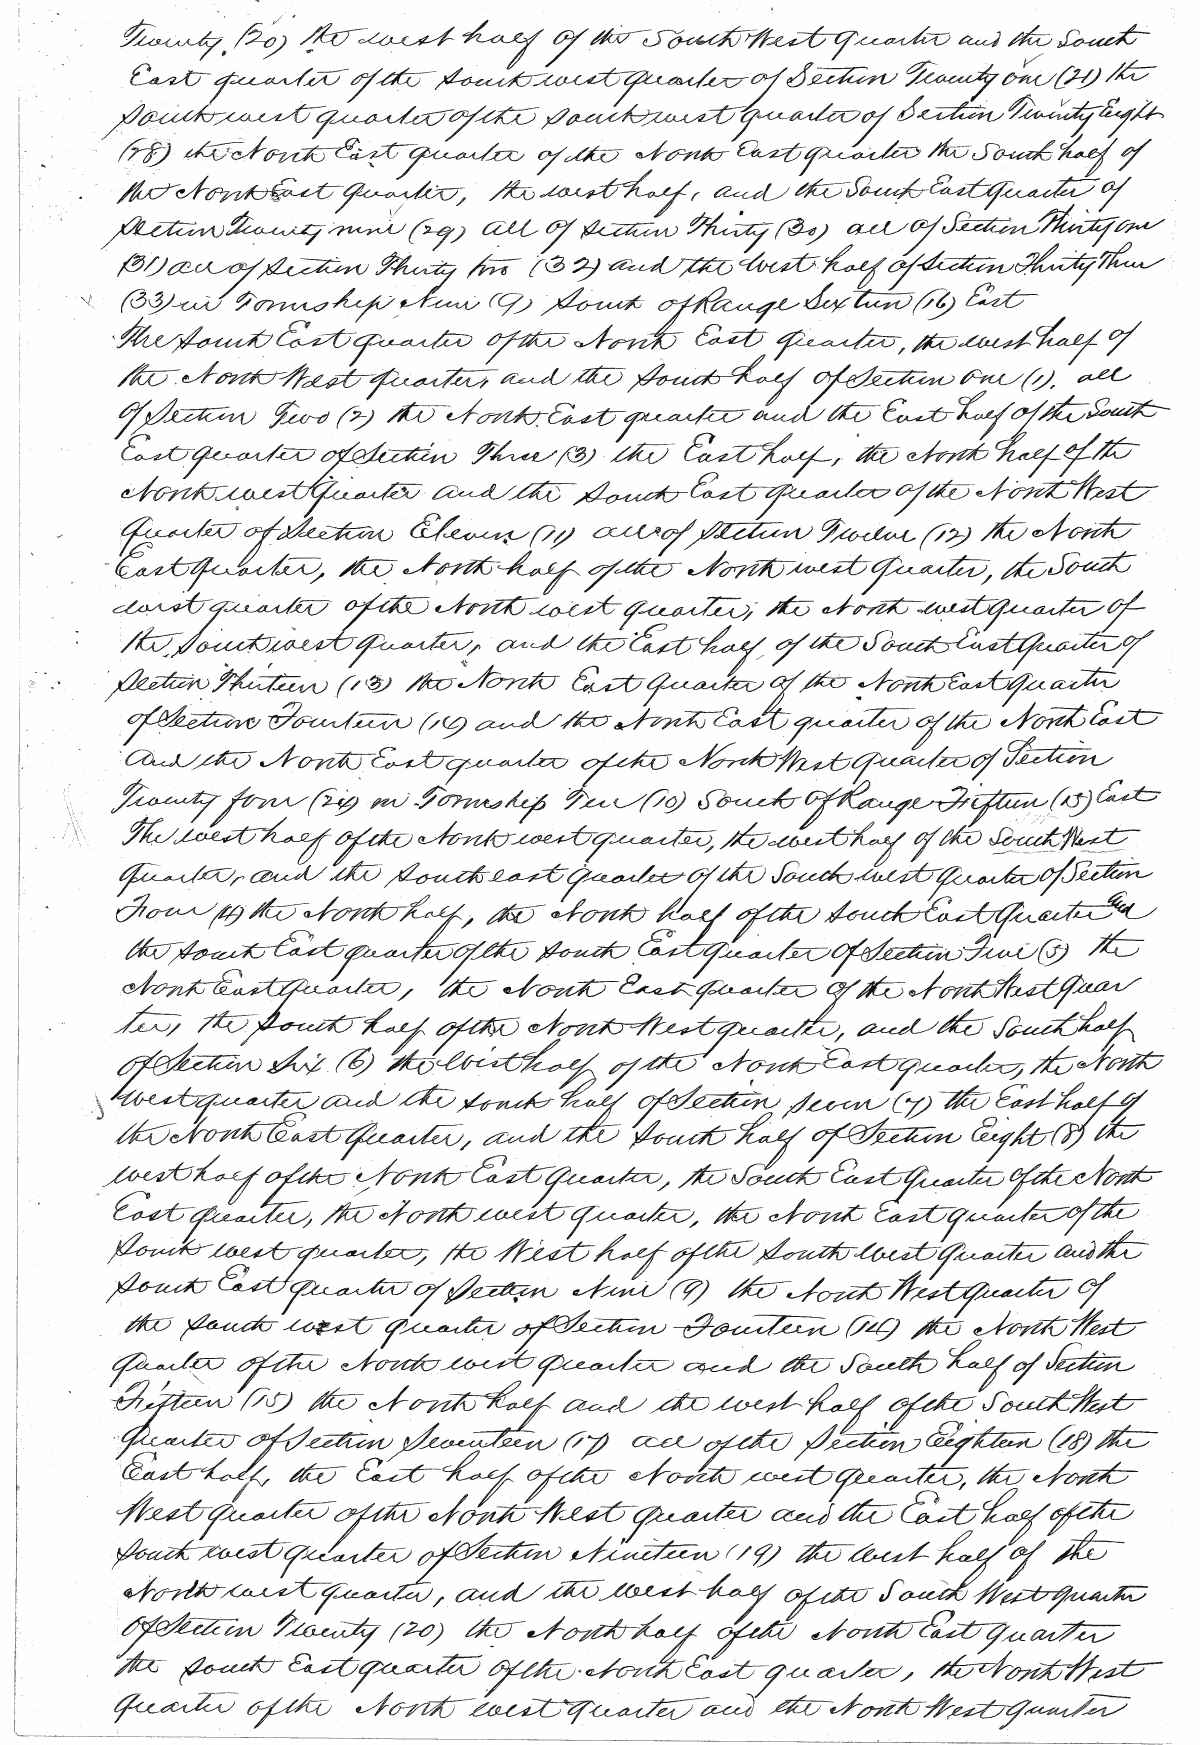 Twenty (20) the west half of the South West quarter and the South
East quarter of the South west quarter of Section Twenty one (21) the
South west quarter of the South west quarter of Section Twenty Eight
(28) the North East quarter of the North East quarter the South half of
the North East quarter, the west half, and the South East quarter of
Section Twenty nine (29) all of Section Thirty (30) all of Section Thirty one
(31) all of Section Thirty two (32) and the West half of Section Thirty Three
(33) in Township Nine (9) South of Range Sixteen (16) East
The South East quarter of the North East quarter, the west half of
the North West quarter, and the South half of Section One (1), all
of Section Two (2) the North East quarter and the East half of the South
East quarter of Section Three (3) the East half, the North half of the
North west quarter and the South East quarter of the North West
Quarter of Section Eleven (11) all of Section Twelve (12) the North
East Quarter, the North half of the North west quarter, the South
west quarter of the North west quarter, the North west quarter of
the South west quarter, and the East half of the South East Quarter of
Section Thirteen (13) the North East Quarter of the North East Quarter
of Section Fourteen (14) and the North East quarter of the North East
and the North East quarter of the North West quarter of Section
Twenty four (24) in Township Ten (10) South of Range Fifteen (15) East
The west half of the North west quarter, the west half of the South West
quarter, and the South east quarter of the South west quarter of Section
Four (4) the North half, the North half of the South East Quarter and
the South East quarter of the South East quarter of Section Five (5) the
North East Quarter, the North East quarter of the North West Quar
ter, the South half of the North West quarter, and the South half
of Section Six (6) the West half of the North East quarter, the North
west quarter and the South half of Section Seven (7) the East half of
the North East Quarter, and the South half of Section Eight (8) the
west half of the North East Quarter, the South East Quarter of the North
East quarter, the North west quarter, the North East quarter of the
South west quarter, the West half of the South West Quarter and the
South East quarter of Section Nine (9) the North West Quarter of
the South west quarter of Section Fourteen (14) the North West
quarter of the North west quarter and the South half of Section
Fifteen (15) the North half and the west half of the South West
Quarter of Section Seventeen (17) all of the Section Eighteen (18) the
East half, the East half of the North west quarter, the North
West quarter of the North West quarter and the East half of the
South west quarter of Section Nineteen (19) the West half of the
North west quarter, and the west half of the South West quarter
of Section Twenty (20) the North half of the North East Quarter
the South East quarter of the North East quarter, the North West
quarter of the North west Quarter and the North West Quarter